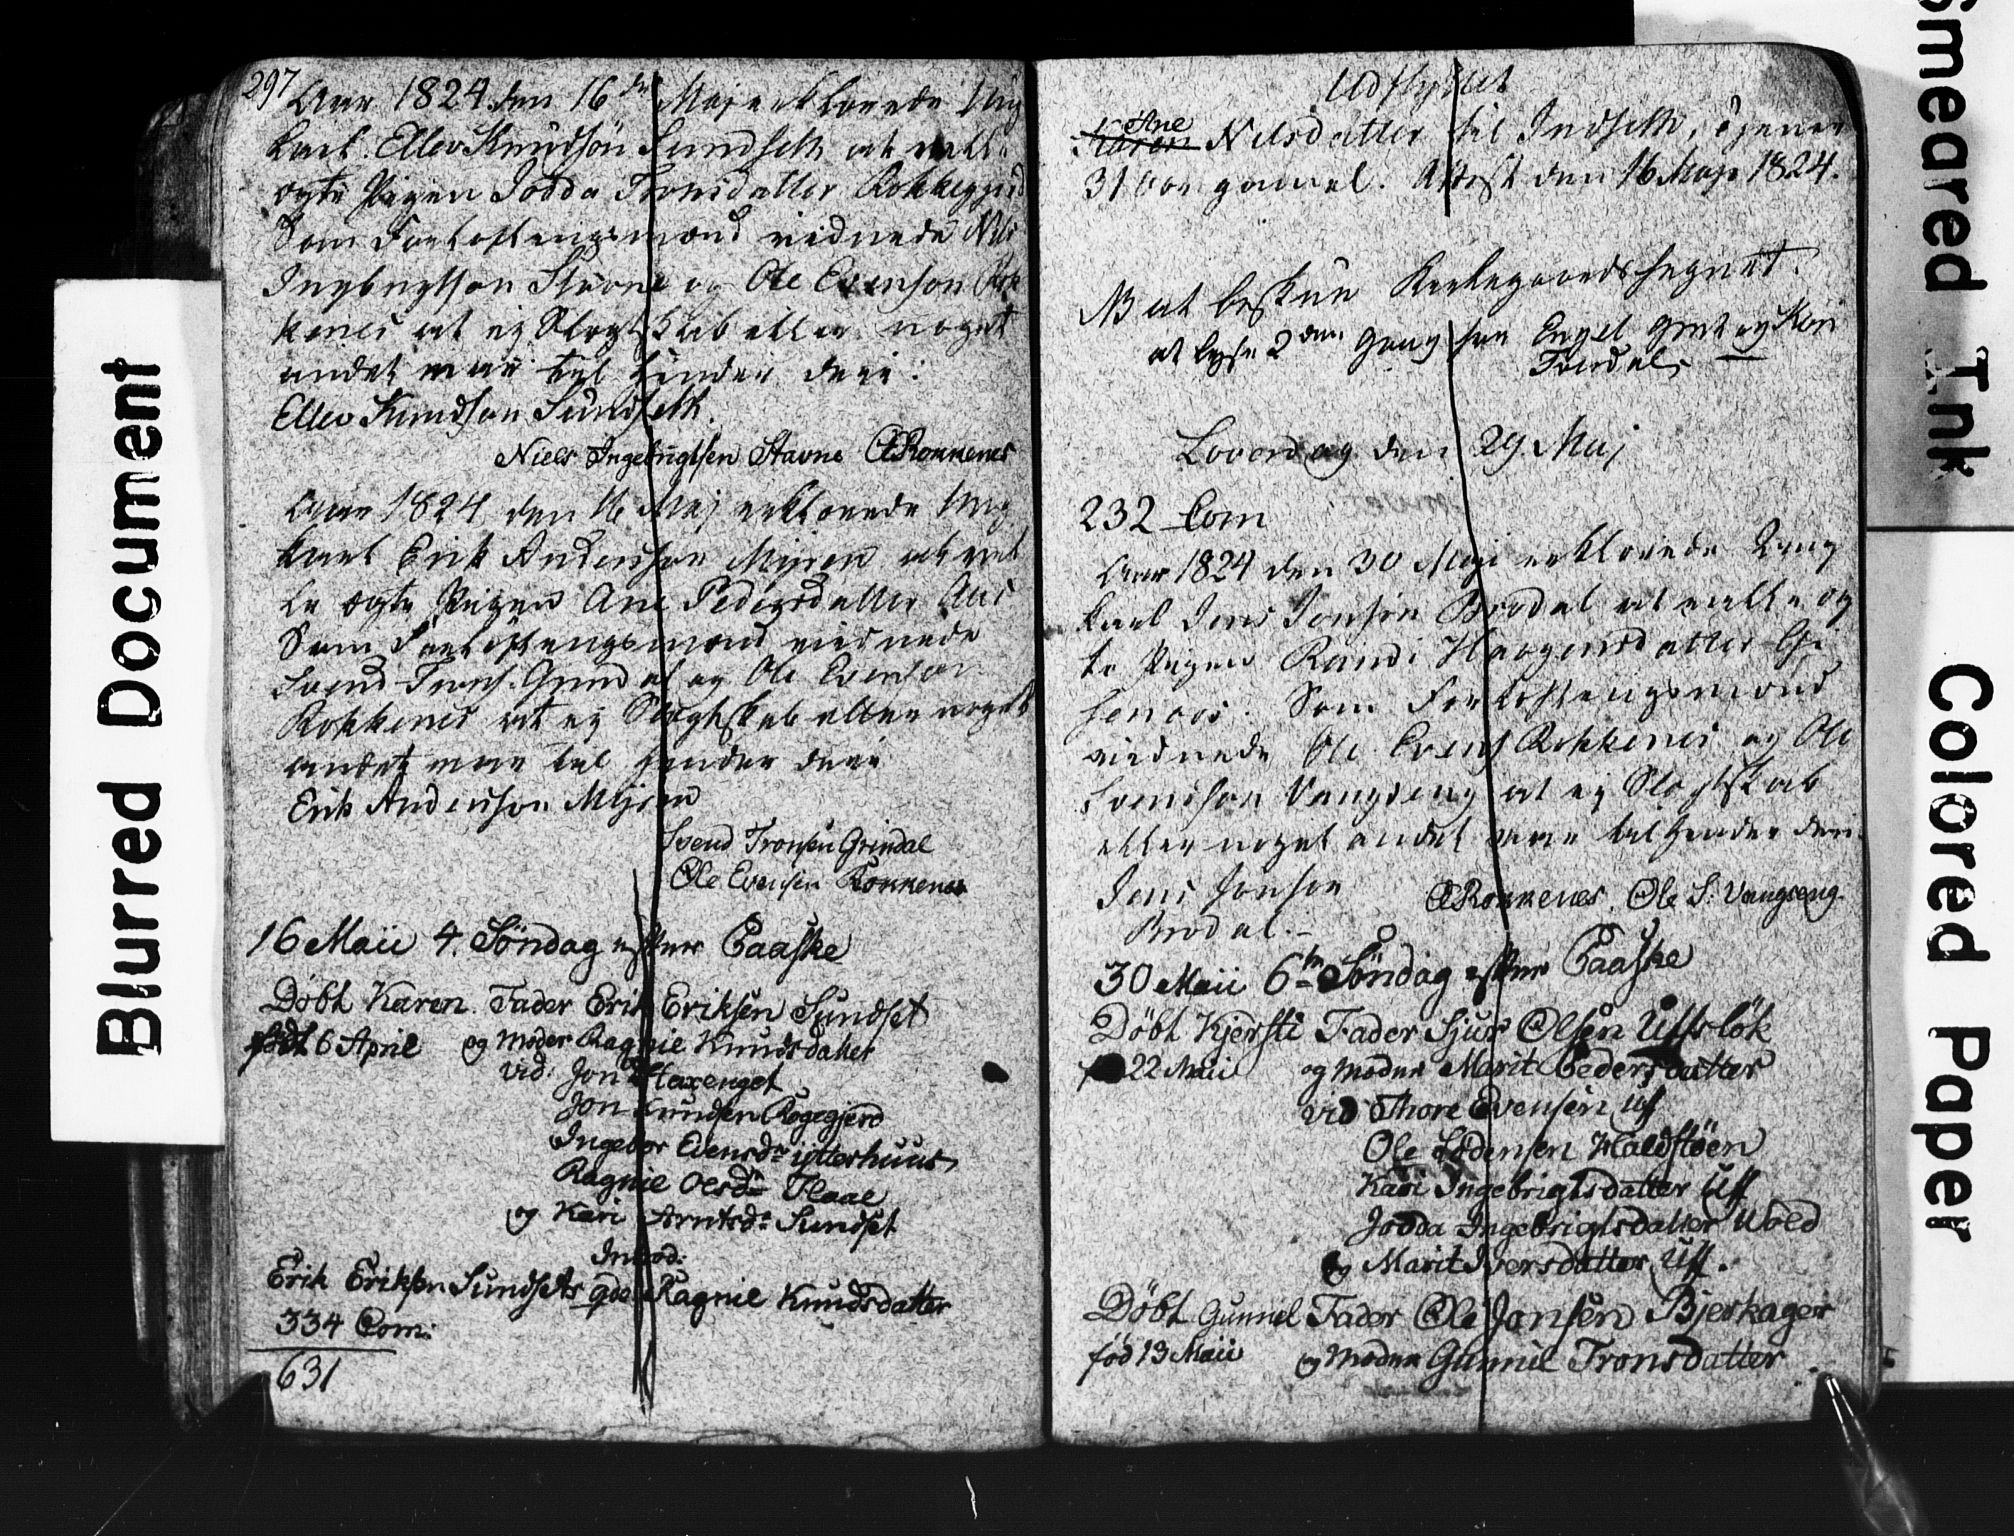 297
Aar 1824 den 16de Maj erklærede Ung
karl Ellev Knudsøn Sundseth at ville
ægte Pigen Jodda Tronsdatter Rokkegjerd
Som Forlofningsmænd vidnede Nils
Ingbrigtson Stavne og Ole Evenson Rok
kenes at ej Slægtskab eller noget
andet var til hinder deri.
Ellev Knudson Sundseth.
Niels Ingebrigtsen Stavne OERokkenes
Aar 1824 den 16 Maj erklærede Ung
karl Erik Andersson Myren at vil
le ægte Pigen Ane Pedersdatter
Som Forlofningsmænd vidnede
Svend Trons. Grindal og Ole Evenson
Rokkenes at ej Slægtskab eller noget
andet var til hinder deri
Erik Anderson Myren
Svend Tronsen Grindal
Ole Evensen Rokkenes
16 Maii 4. Söndag efter Paaske
Döbt Karen. Fader Erik Eriksen Sundset
födt 6 April og Moder Ragnie Knudsdatter
vid: Jon Staxenget
Jon Knudsen Rogegjerd
Ingebor Evensdr ytterhuus
Ragnie Olsdr Flaae
og Kari Arntsdr Sundset
Introd:
Erik Eriksen Sundsets qde Ragnie Knudsdatter
334 Com:
631
Udflyttet
Ane
Karen Nilsdatter til Indseth, tjener
31 Aar gammel. Attest den 16 Maji 1824.
NB at Kirkegaardshegnet.
at lyse 2den Gang for Engel og Kari
Løverdag den 29 Maj
232 Com
Aar 1824 den 30 Maji erklærede Ung
karl Jens Jonsön Brodal at ville æg
te Pigen Randi Haagensdatter Gi
senaas. Som Forlofningsmænd
vidnede Ole Evens Rokkenes og Ole
Svendson Vangseng at ej Slægtskab
eller noget andet var til hinder deri
Jens Jonson OERokkenes. Ole S. Vangseng.
Brodal.
30 Maii 6te Söndag efter Paaske
Döbt Kjersti Fader Sjur Olsen Uffslök
22 Maii og Moder Marit Pedersdatter
vid Thore Evensen Uff
Ole Lodensen Haldstöen
Kari Ingebrigtsdatter Uff
Jodda Ingebrigtsdatter Wold
og Marit Iversdatter Uff.
Döbt Gunnil Fader Ole Jonsen Bjerkager
föd 13 Maii og Moder Gunnil Tronsdatter
Blurred Document
Smeared Ink
Colored Paper